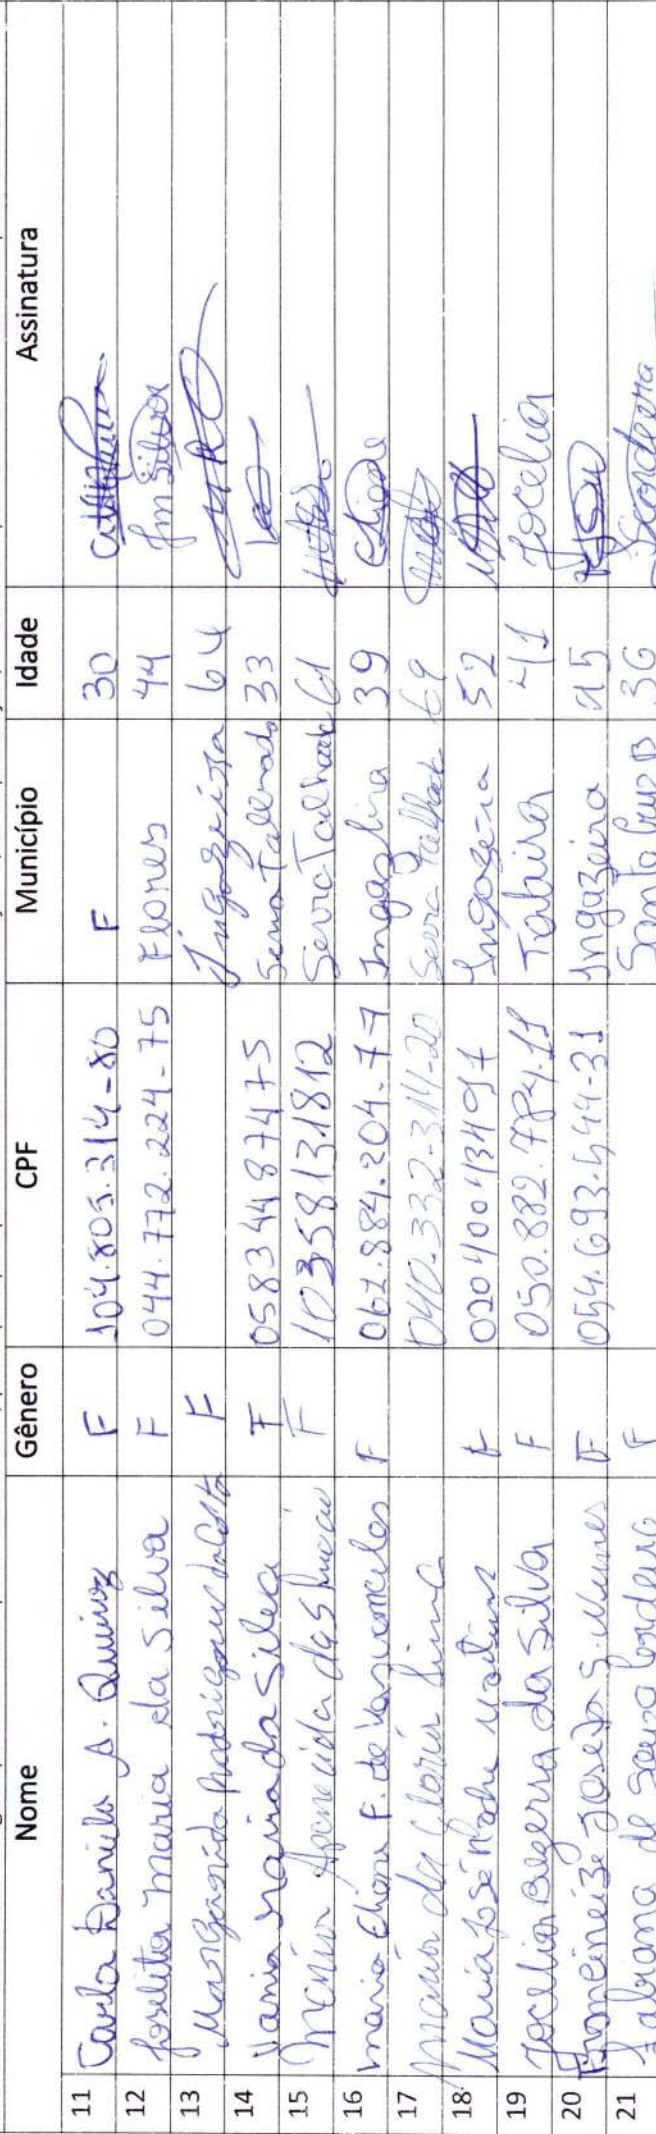 Nome Gênero CPF Município Idade Assinatura
11 Carla Daniela A. Quiroz F 104.805.314-80 F 30
12 Joselita Maria da Silva F 044.772.224-75 Flores 44 Jm Silva
13 Margarida Rodrigues da Costa F Ingazeira 64
14 Vania Maira da Silva F 05834487475 Serra Talhada 33
15 Maria Aparecida da S F 10358131812 Serra Talhada 61
16 Maria Eliane F. de Vasconcelos F 061.884.204.77 Ingazeira 39 Eliane
17 Maria da Gloria Lima 040.332.314-20 Serra Talhada 69
18 Maria José F 02040043497 Ingazeira 52
19 Jocelia Bezerra da Silva F 050.882.784.11 Tabira 41 Jocelia
20 Josefa S. Nunes F 054.693.444-31 Ingazeira
21 Fabiana de Souza Cordeiro F Santa Cruz B 36